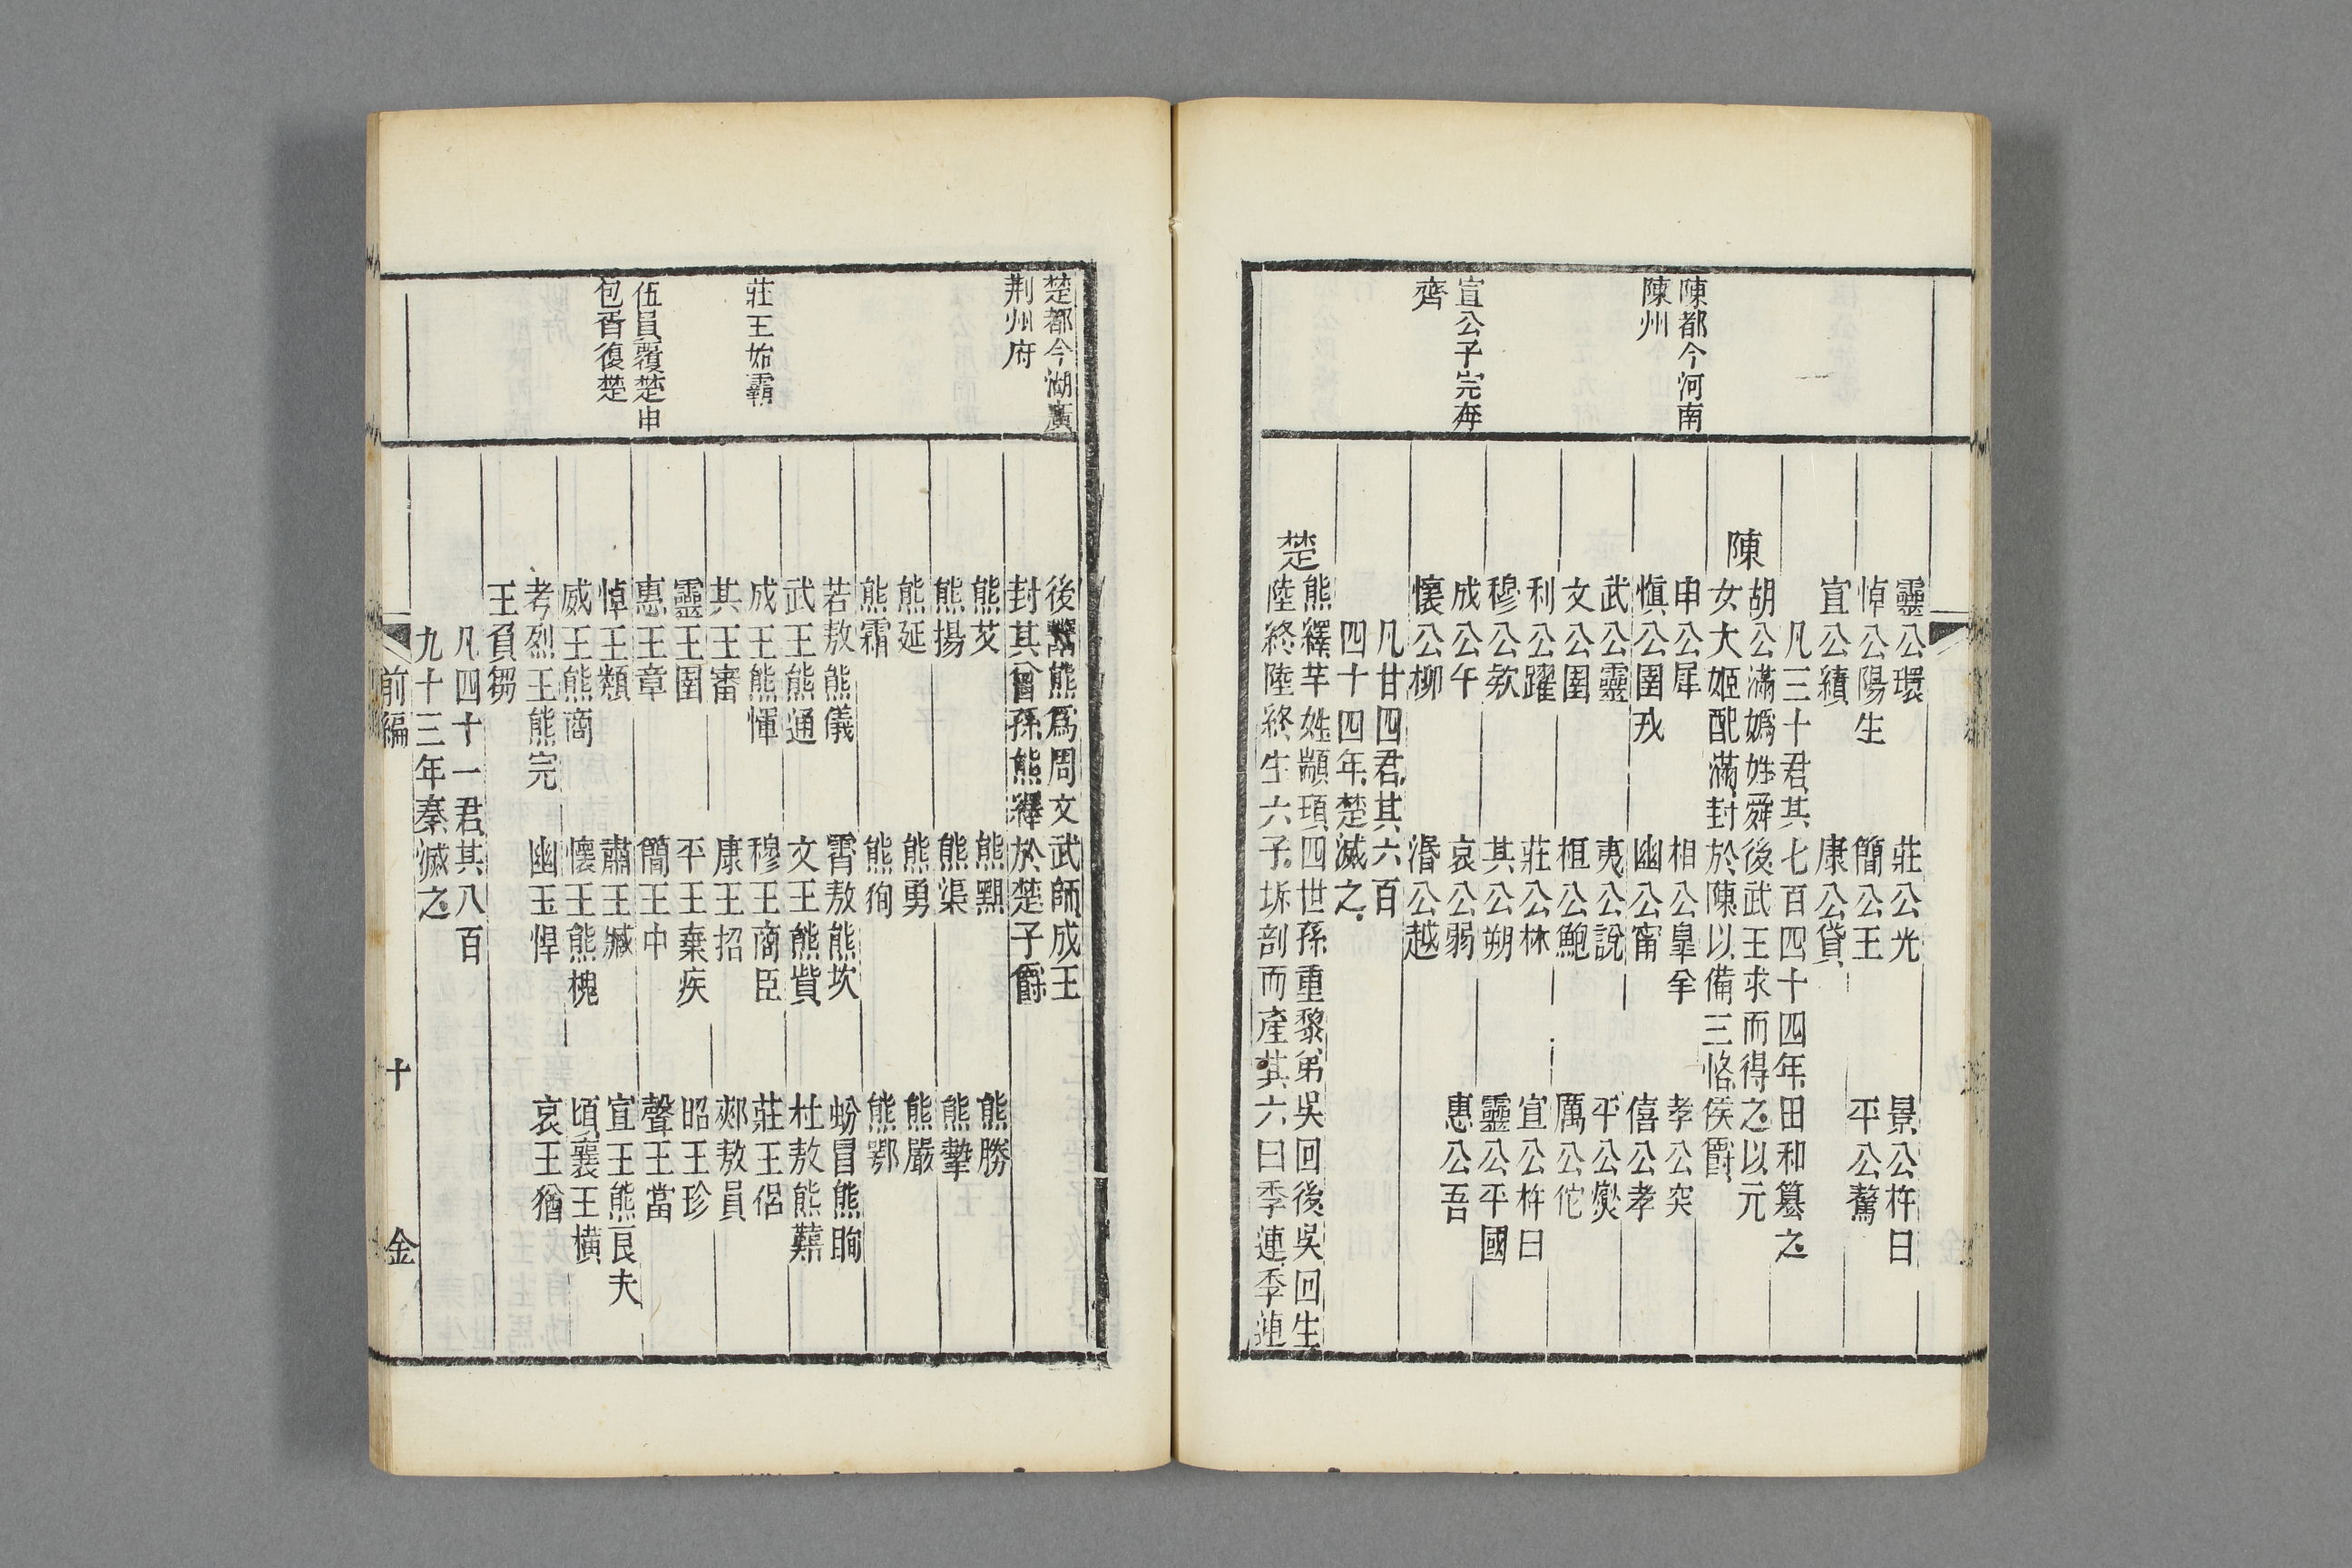 靈公環　莊公光　景公杵曰
悼公陽生　簡公王　平公驁
宣公績　康公貸
凡三十君其七百四十四年田和簒之
陳都今河南
陳州
陳
胡公滿嬀姓舜後武王求而得之以元
女大姬配滿封於陳以備三恪侯爵
申公犀　相公臯羊　孝公突
慎公圉戎　幽公甯　僖公孝
武公靈　夷公說　平公爕
文公圉　桓公鮑　厲公佗
利公躍　莊公林　宣公杵曰
穆公欵　其公朔　靈公平國
宣公子完奔
齊
成公午　哀公弱　惠公吾
懷公柳　湣公越
凡廿四君其六百
四十四年楚滅之
楚
熊繹芈姓顓頊四世孫重黎弟吳回後吳回生
陸終陸終生六子坼剖而產其六曰季連季連
楚都今湖廣
荆州府
後鬻熊爲周文武師成王
封其曾孫熊繹於楚子爵
熊艾　熊䵣　熊勝
熊揚　熊渠　熊摯
熊延　熊勇　熊嚴
熊霜　熊徇　熊鄂
若敖熊儀　霄敖熊坎　蚡冒熊眴
武王熊通　文王熊貲　杜敖熊囏
莊王始霸
成王熊惲　穆王商臣　莊王侶
其王審　康王招　郟敖員
靈王圍　平王棄疾　昭王珍
伍員覆楚申
包胥復楚
惠王章　簡王中　聲王當
悼王類　肅王臧　宣王熊良夫
威王熊商　懷王熊槐　頃襄王橫
考烈王熊完　幽王悍　哀王猶
王負芻
凡四十一君其八百
九十三年秦滅之
前編　十　金